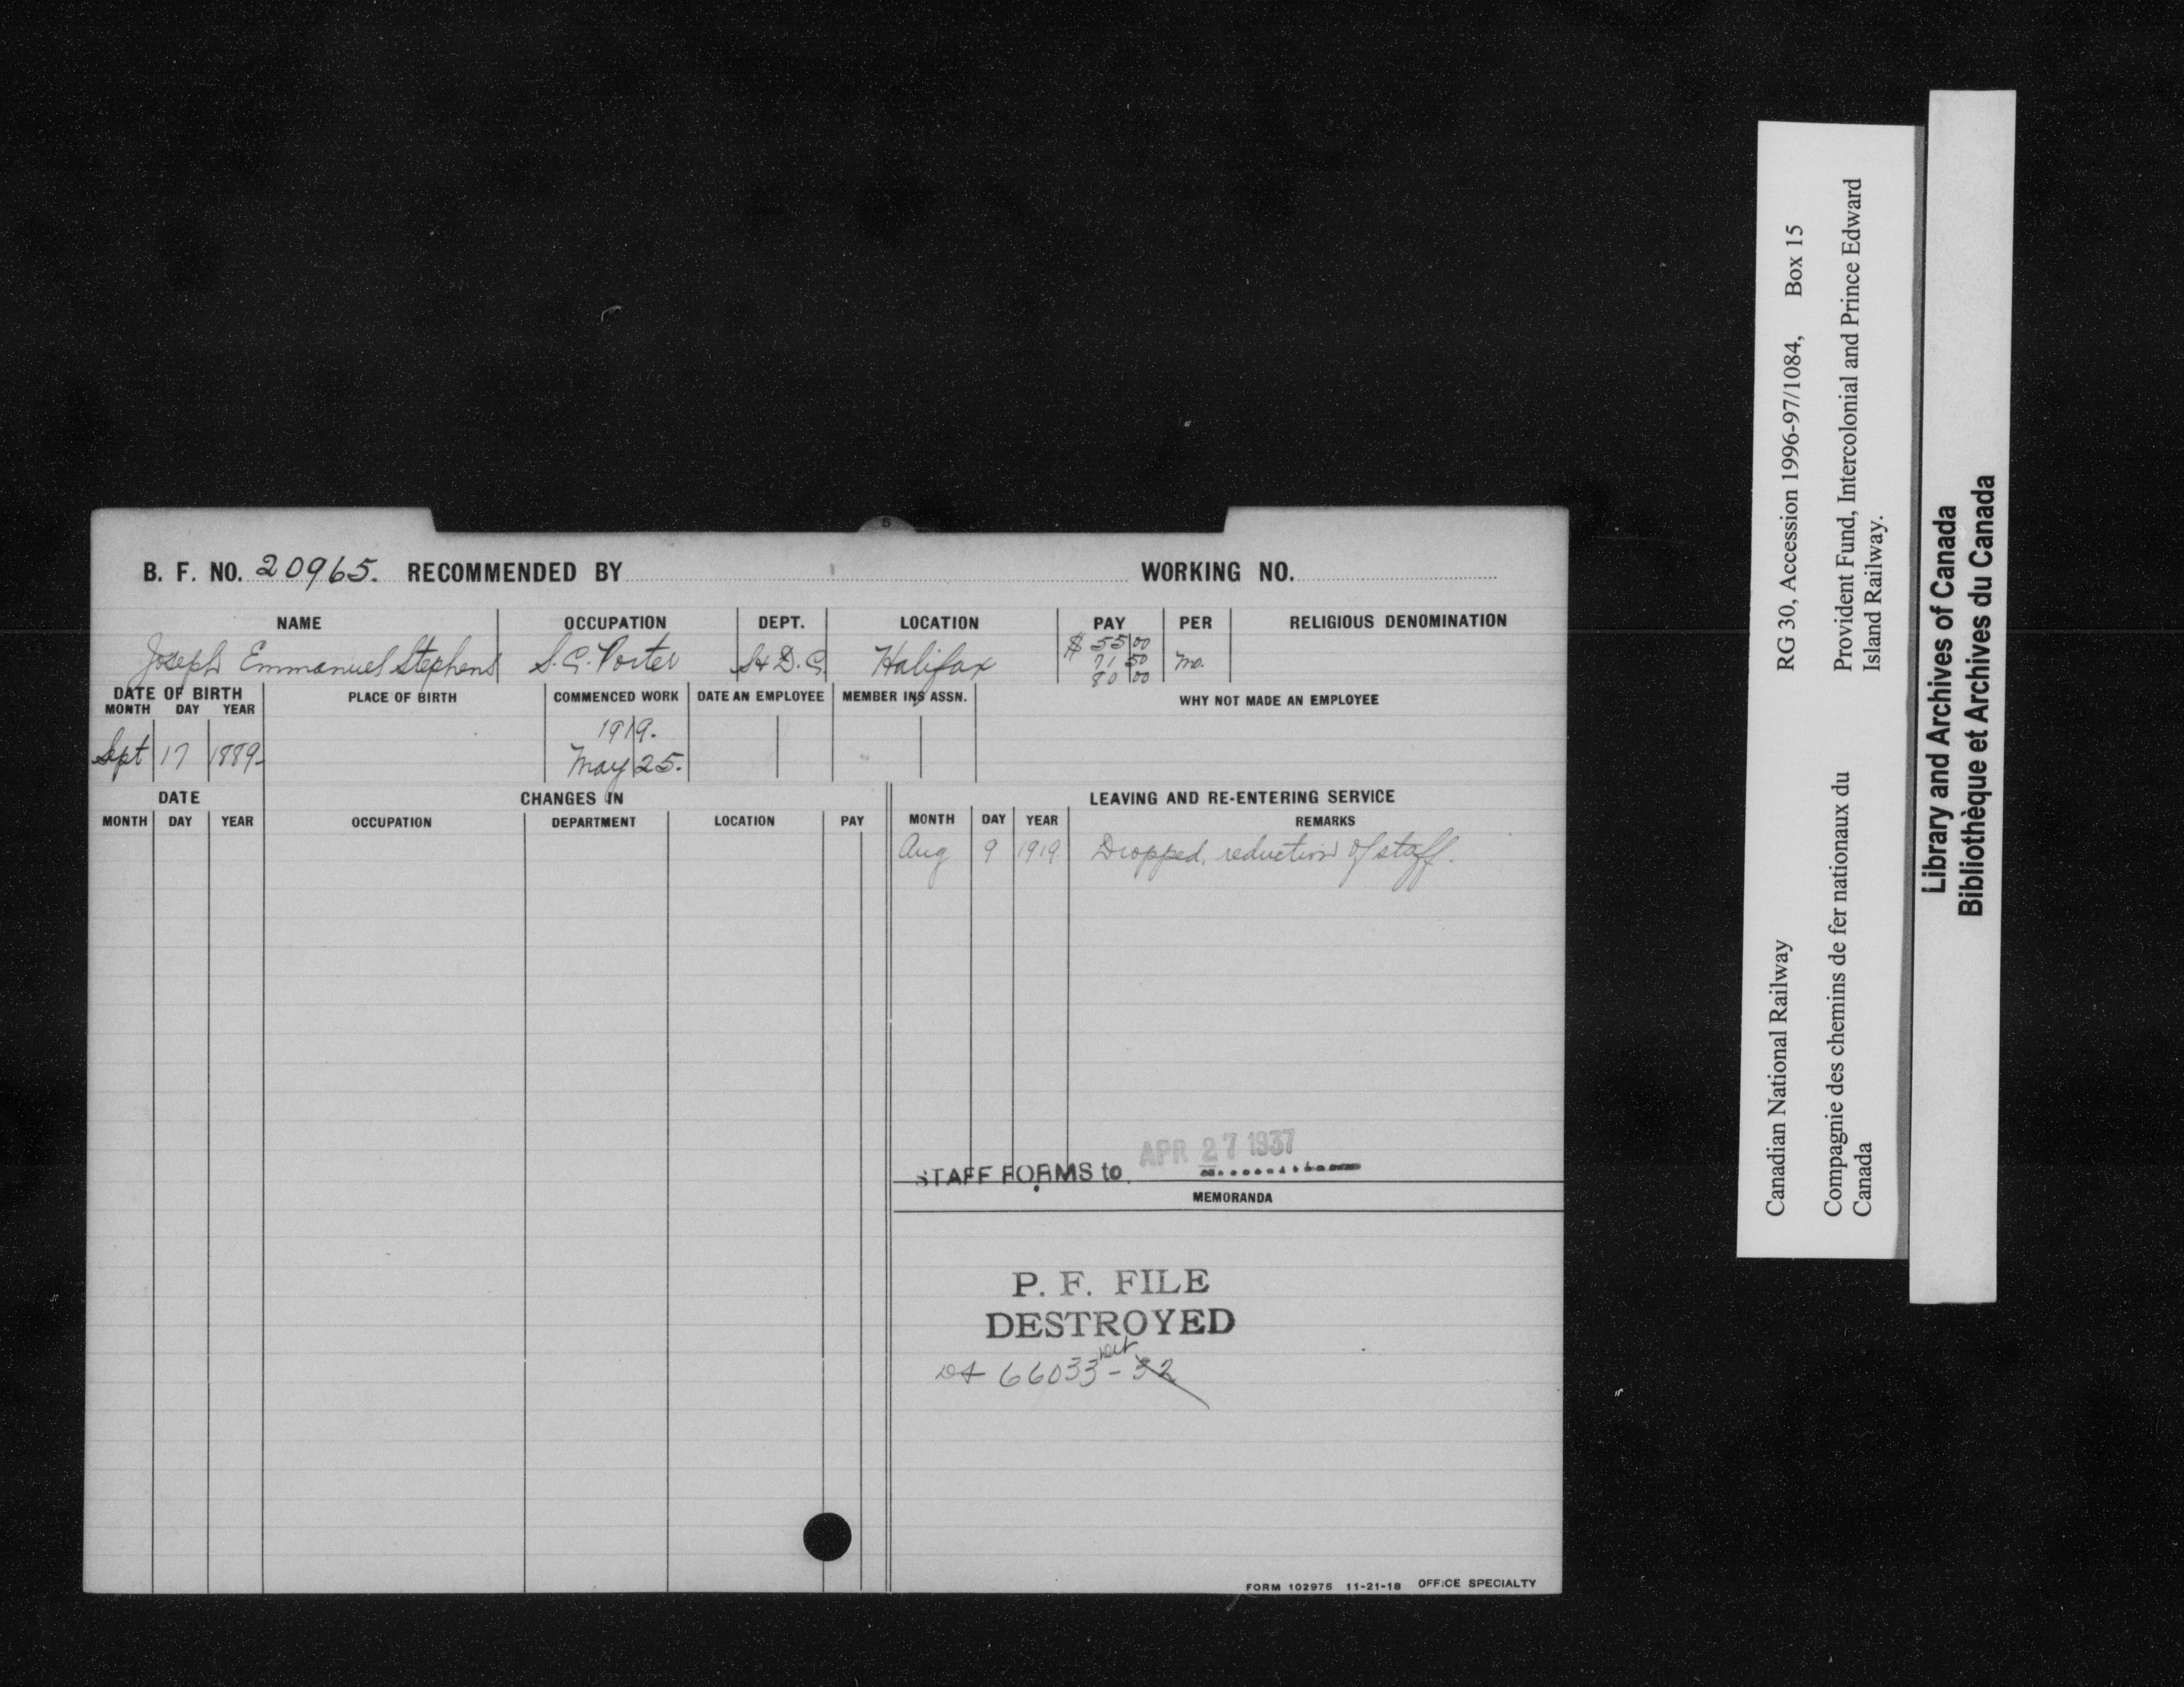 B. F. NO. 20965. RECOMMENDED BY WORKING NO.
NAME OCCUPATION DEPT. LOCATION PAY PER RELIGIOUS DENOMINATION
Joseph Emmanuel Stephens S.C. Porter S&D.C. Halifax $55 00 mo.
71 50
80 00
DATE OF BIRTH PLACE OF BIRTH COMMENCED WORK DATE AN EMPLOYEE MEMBER INS ASSN. WHY NOT MADE AN EMPLOYEE
MONTH DAY YEAR
1919.
Sept 17 1889 May 25.
DATE CHANGES IN LEAVING AND RE-ENTERING SERVICE
MONTH DAY YEAR OCCUPATION DEPARTMENT LOCATION PAY MONTH DAY YEAR REMARKS
Aug 9 1919 Dropped, reduction of staff.
STAFF FORMS to APR 27 1937
MEMORANDA
P. F. FILE
DESTROYED
66033-32
FORM 102975 11-21-18 OFFICE SPECIALTY
Canadian National Railway RG 30, Accession 1996-97/1084, Box 15
Compagnie des chemins de fer nationaux du Canada
Provident Fund, Intercolonial and Prince Edward Island Railway.
Library and Archives of Canada
Bibliothèque et Archives du Canada